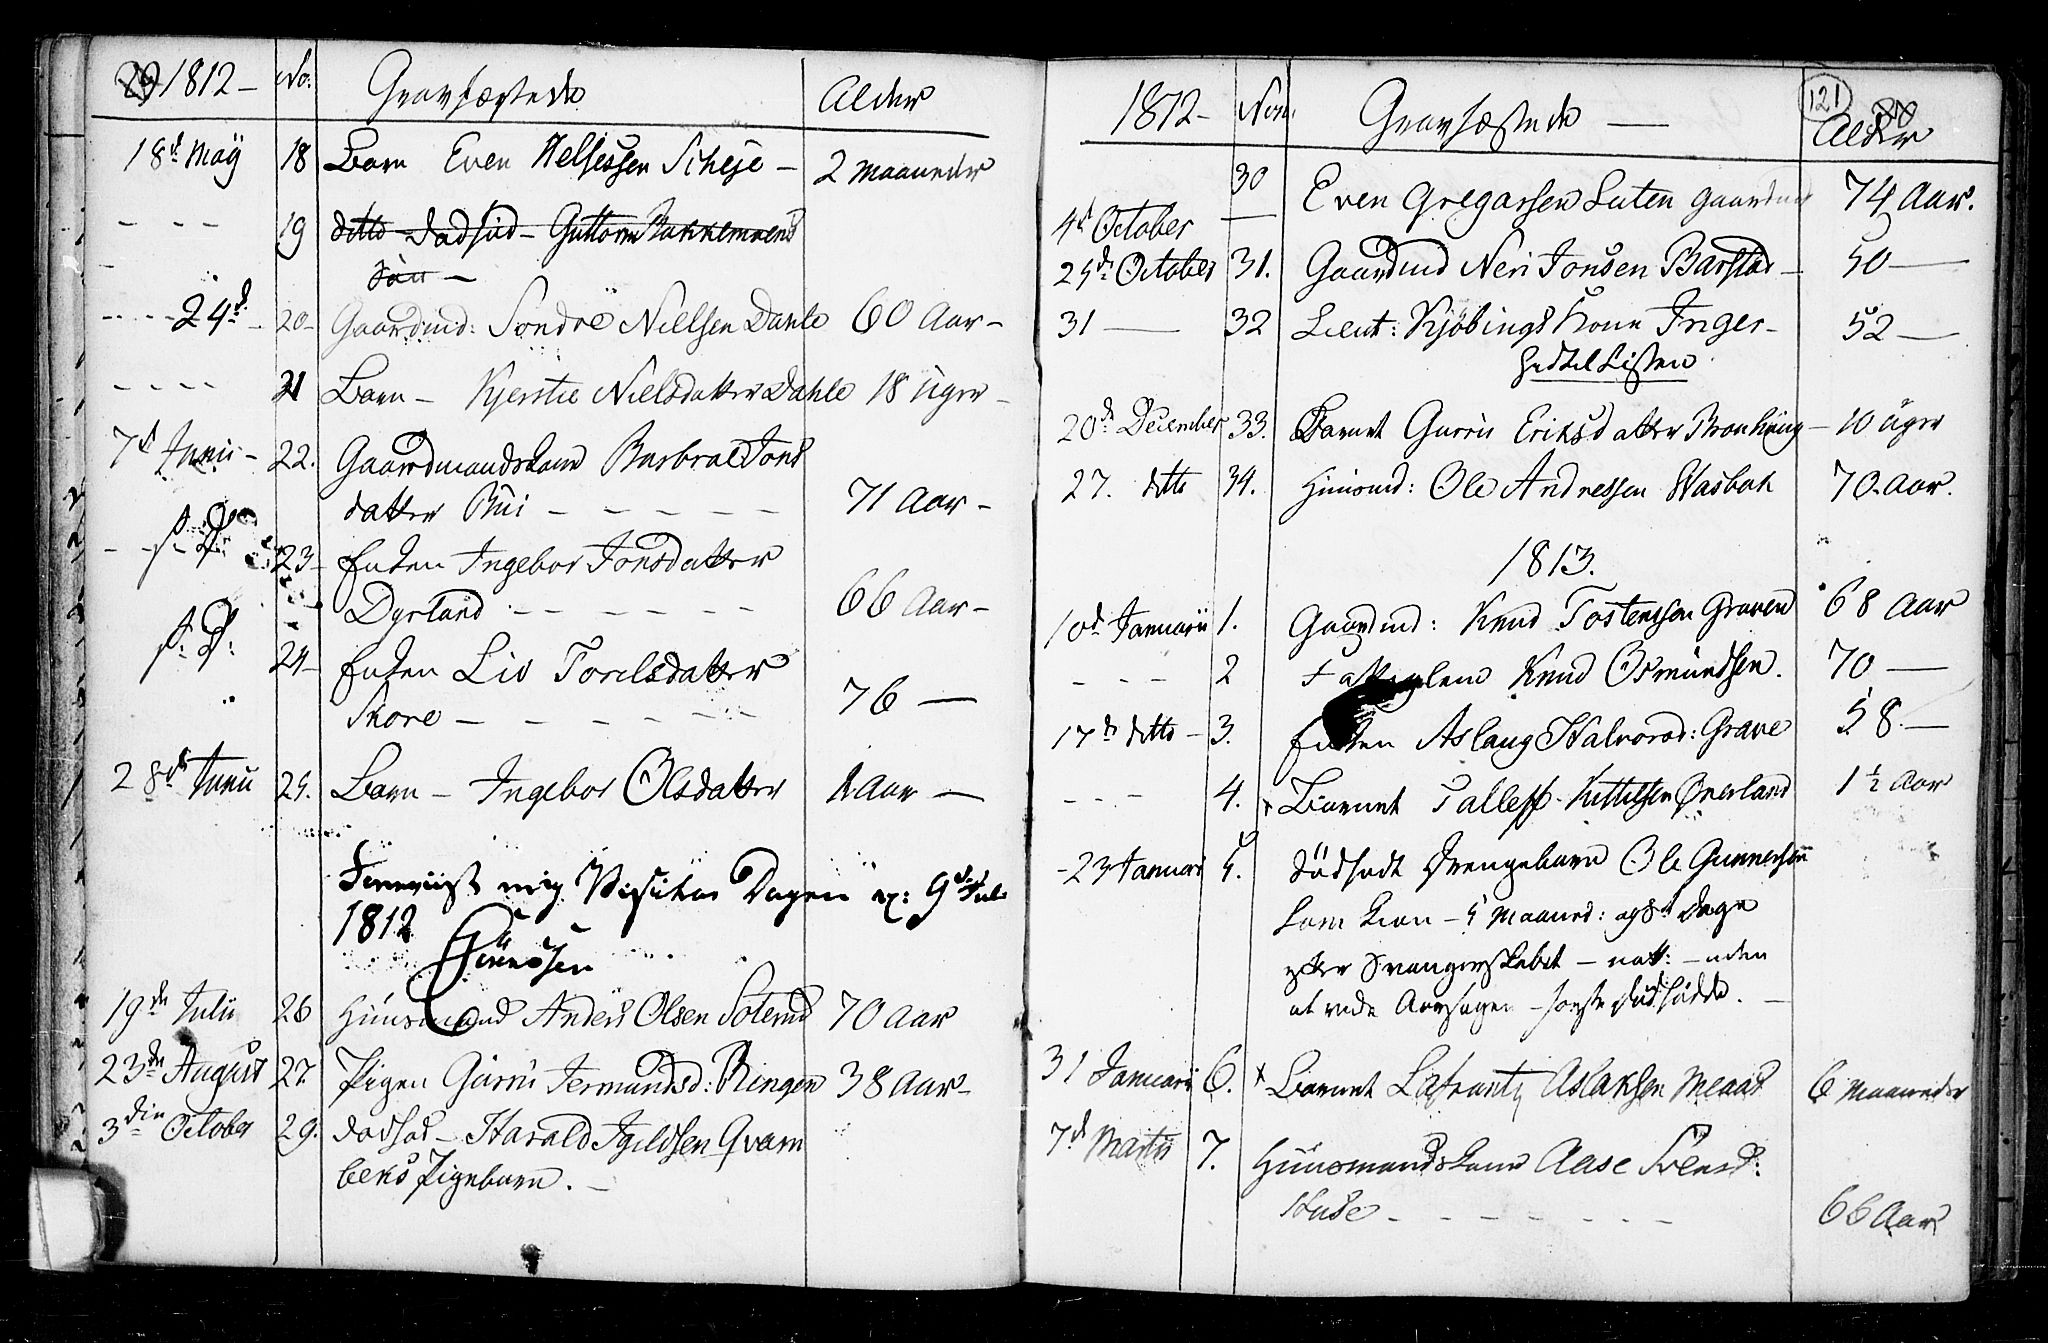 1812 – No: Gravfæstede Alder
18d May 18 Barn Even Kelsessen Scheje – 2 Maaneder
– – – 19 ditto dødfød – Guttorm Bakkemoens
Søn –
– – – 24d 20 – Gaardmd: Søndre Nielsen Dahle 60 Aar –
– – – – 21 Barn – Kjerstie Nielsdatter Dahle 18 Uger –
7d Junii – 22. Gaardmandskone Barbroe Jons
datter Bui – – – – – 71 Aar –
– – s. D: 23 – Enken Ingebor Jonsdatter
Dyrland – – – – – 66 Aar –
s: D: 24 – Enken Liv Torelsdatter
Skore – – – – – – 76 –
28d Junii 25. Barn – Ingebor Olsdatter 1 Aar –
Foreviist mig Visitas Dagen ex: 9d Juli
1812
19de Julii 26 Huusmand Anders Olsen Soterud 70 Aar
23de August 27. Pigen Gurru Jermundsd: Ringen 38 Aar –
3die October 29. dødfød – Harald Igeldsen Qvam
beks Pigebarn. –
1812 – Non. Gravfæstede – 121 Alder
4d October 30 Even Gregarsen Luten Gaardmd 74 Aar.
25de October 31. Gaardmd Neri Jonsen Barstad – 50 –
31 – 32 Lieut: Kjöbings Kone Inger – 52 –
hid til Listen
20de December 33. Barnet Gurru Eriksdatter Bronhaug – 10 Uger
27. ditto 34. Huusmd: Ole Andressen Hasbak 70. Aar.
1813.
10d Januarii 1. Gaardmd: Knud Tostensen Graven 68 Aar
– – – 2 Fattiglem Knud Osmundsen. 70 –
17de ditto – 3. Enken Aslaug Halvorsd: Grave 58. –
– – – 4. x Barnet Tallef Kittilsen Øverland 1½ Aar
– 23 Januar 5. dødfødt Drengebarn Ole Gunnersen
som kom – 5 Maaned: og 8t Dage
efter Svangerskabet – – uden
at vide Aarsagen – første dødfødde. –
31 Januarii 6. x Barnet Lafrantz Aslaksen Meaas 6 Maaneder
7de Martii 7. Huusmandskone Aase Svensd:
Huse – – – – – – – 66 Aar